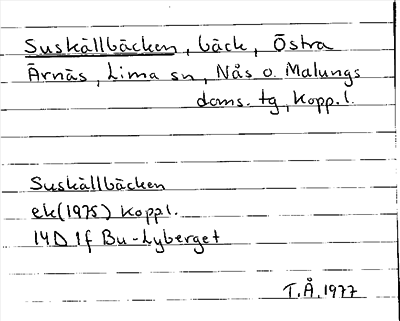 Suskällbäcken, bäck, Östra
Ärnäs, Lima sn, Nås o. Malungs
doms. tg, Kopp. l.
Suskällbäcken
ek(1975) Koppl.
14D 1f Bu-Lyberget
T.Å. 1977